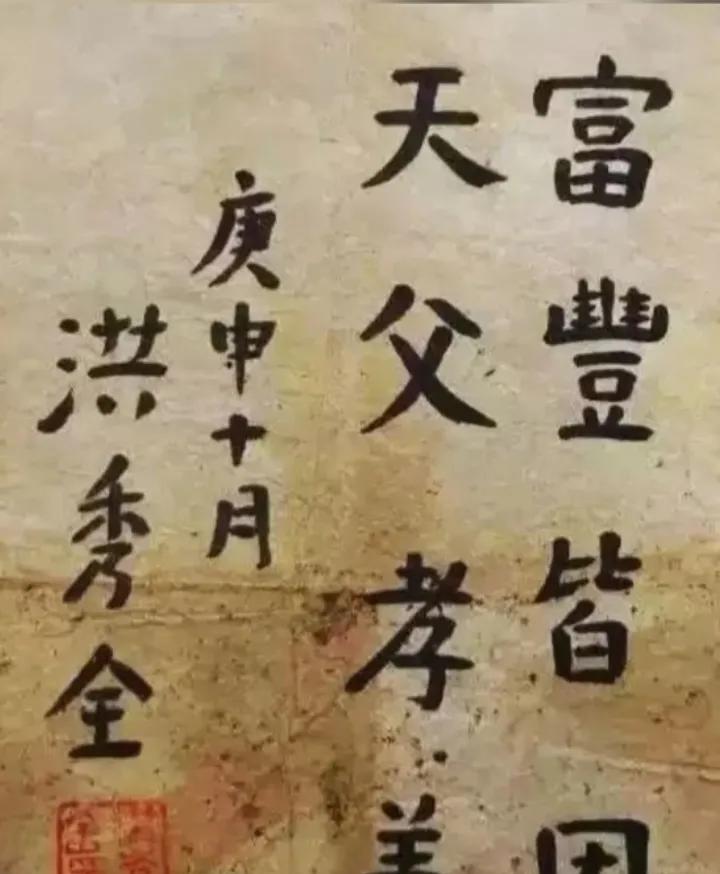 富豐皆因
天父孝
庚申十月
洪秀全